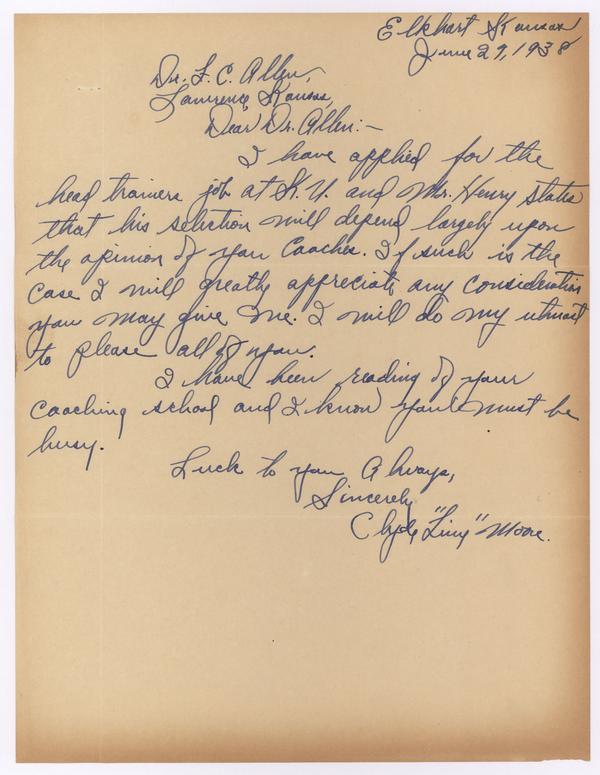 Elkhart Kansas
June 29, 1938
Dr. F. C. Allen,
Lawrence, Kansas,
Dear Dr. Allen:—
I have applied for the
head trainers job at K. U. and Mr. Henry states
that his selection will depend largely upon
the opinion of you Coaches. If such is the
case I will greatly appreciate any consideration
you may give me. I will do my utmost
to please all of you.
I have been reading of your
coaching school and I know you must be
busy.
Luck to you Always,
Sincerely
Clyde "Limy" Moore.